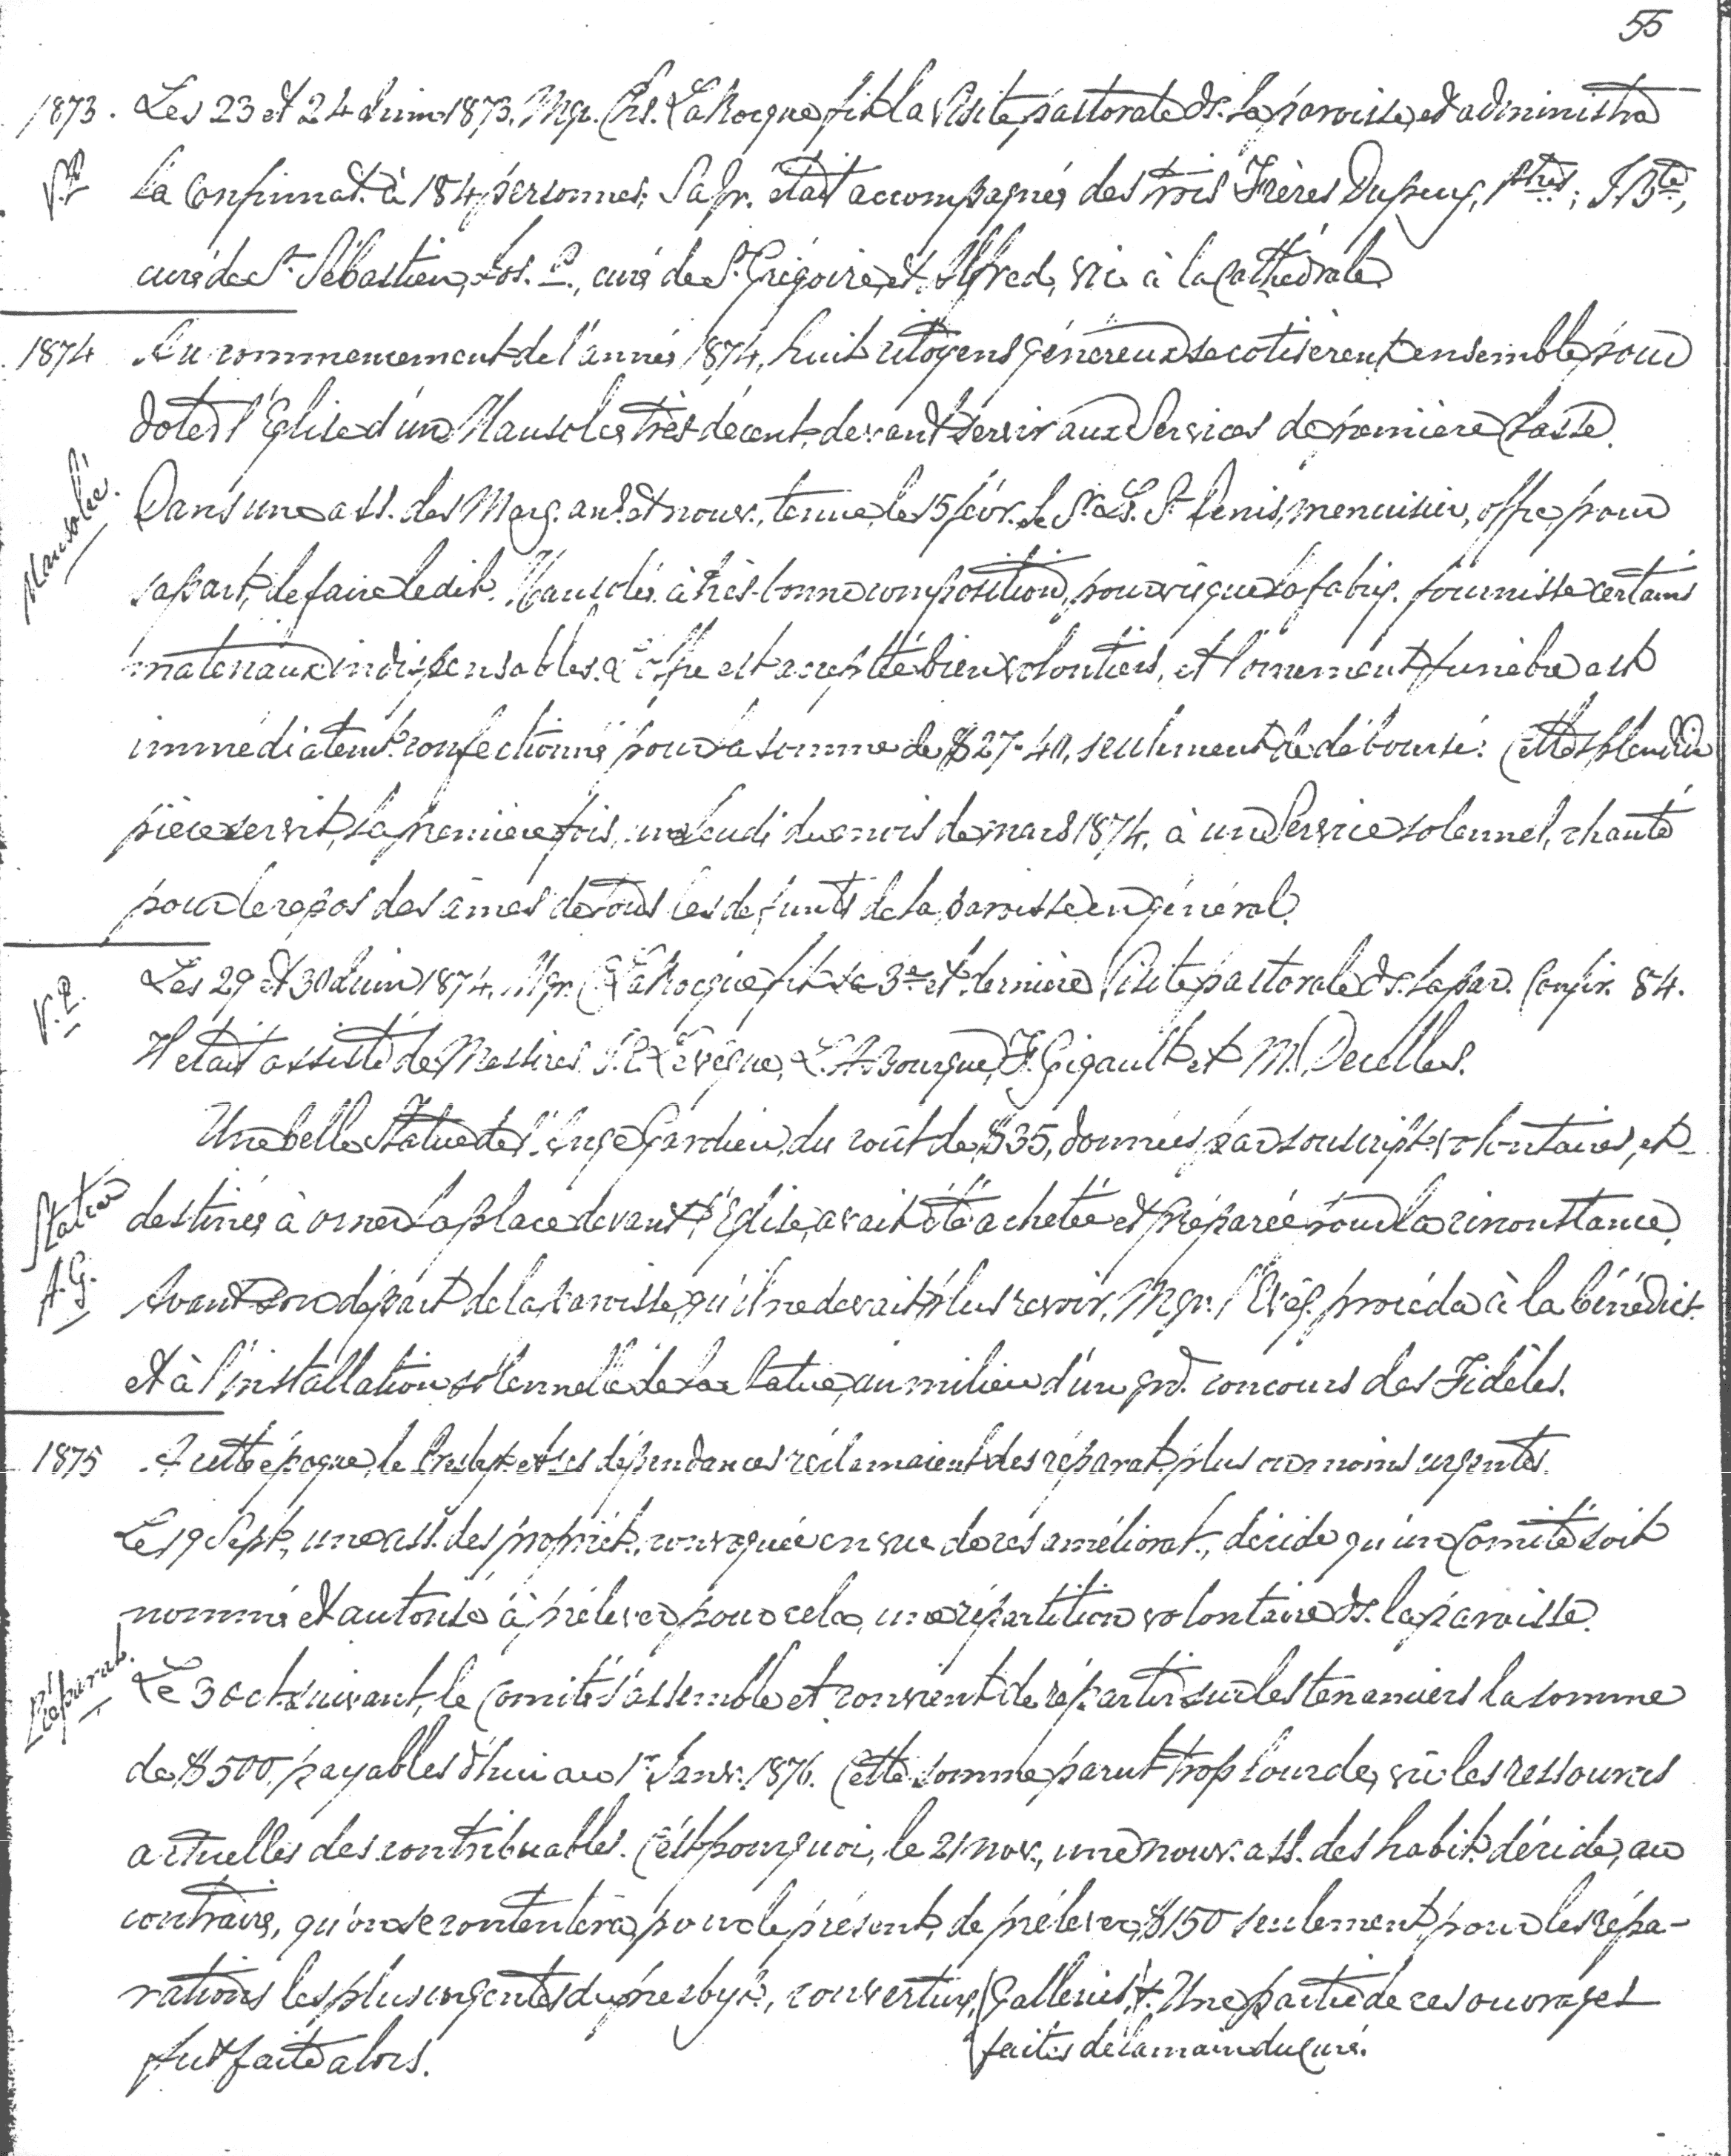 55
1873. Les 23 et 24 Juin 1873. Mgr. Chs. LaRocque fit la Visite pastorale ds. la paroisse, et administra
V. P. la Confirmat. à 184 personnes; Sa Gr. était accompagnée des trois Frères Dupuy, Ptres; J. Bte,
curé de St Sébastien, Jos. P., curé de St Grégoire, et Alfred, vic. à la Cathédrale.
1874 Au commencement de l'année 1874, huit citoyens généreux se cotisèrent ensemble pour
doter l'Eglise d'un Mausolée très décent, devant servir aux Services de première Classe.
Mausolée. Dans une ass. des Marg. anc. et nouv., tenue le 15 févr. le Sr. L. St Denis, menuisier, offre, pour
sa part, de faire le dit Mausolée à très-bonne composition, pourvu que la fabriq. fournisse certains
matériaux indispensables. L'offre est acceptée bien volontiers, et l'ornement funèbre est
immédiatemt. confectionné pour la somme de $27-40, seulement de déboursé. Cette splendide
pièce servit, la première fois, un Jeudi du mois de mars 1874, à un Service solennel, chanté
pour le repos des âmes de tous les défunts de la paroisse en général.
V. P. Les 29 et 30 Juin 1874, Mgr. C. LaRocque fit sa 3e et dernière Visite pastorale ds. la par. Confir. 84.
Il était assisté de Messires J. C. Levêque, L. A. Bourque, F. Gigault et M. Decelles.
Une belle Statue de l'Ange Gardien, du coût de $35, donnée par souscript. volontaires, et
Statue A. G. destinée à orner la place devant l'Eglise, avait été achetée et préparée pour la circonstance.
Avant son départ de la paroisse, qu'il ne devait plus revoir, Mgr. l'Evêq. procéda à la bénédict.
et à l'installation solennelle de la Statue, au milieu d'un grd. concours des Fidèles.
1875 A cette époque, le Presbyt. et ses dépendances réclamaient des réparat. plus ou moins urgentes.
Le 19 Sept., une ass. des propriét., convoquée en vue de ces améliorat., décide qu'un Comité soit
nommé et autorisé à prélever pour cela, une répartition volontaire ds. la paroisse.
Réparat. Le 3 oct. suivant, le Comité s'assemble et convient de répartir sur les tenanciers la somme
de $500. payables d'hui au 1r Janv. 1876. Cette somme parut trop lourde, vu les ressources
actuelles des contribuables. C'est pourquoi, le 21 nov., une nouv. ass. des habit. décide, au
contraire, qu'on se contentera, pour le présent, de prélever $150 seulement, pour les répa-
rations les plus urgentes du presbyt., couverture, (Galleries), &. Une partie de ces ouvrages
fut faite alors. (faites de la main du Curé.